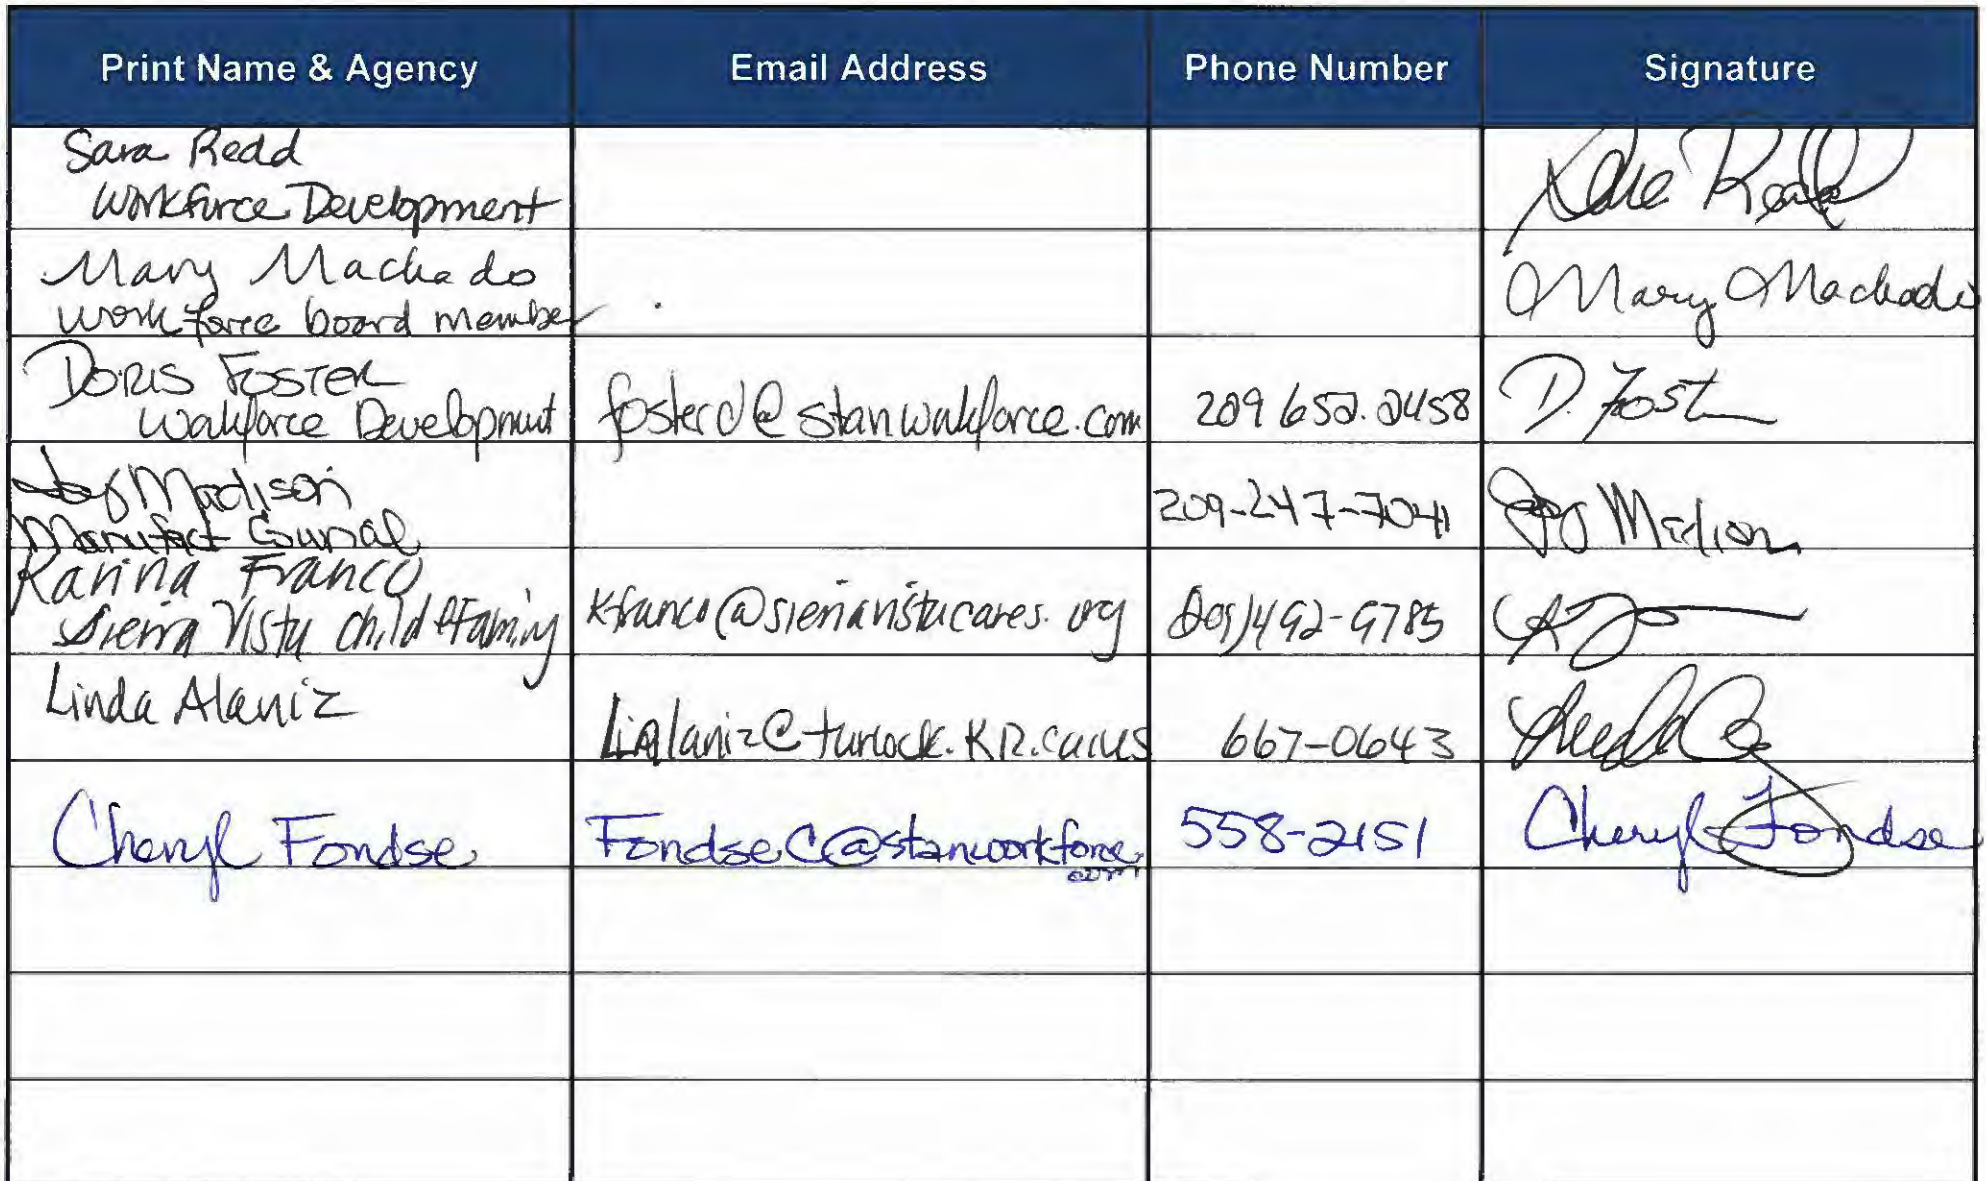 Print Name & Agency Email Address Phone Number Signature
Sara Redd
Workforce Development
Mary Machado Mary Machado
workforce board member
DORIS FOSTER
Workforce Development fosterd@stanworkforce.com 209 652.2458 D. Foster
Joy Madison 209-247-7041 Joy Madison
Manufact Council
Karina Franco
Sierra Vista Child & Family kfranco@sierravistacares.org (209)492-9785
Linda Alaniz
Lialaniz@turlock.K12.ca.us 667-0643
Cheryl Fondse FondseC@stanworkforce. 558-2151 Cheryl Fondse
com